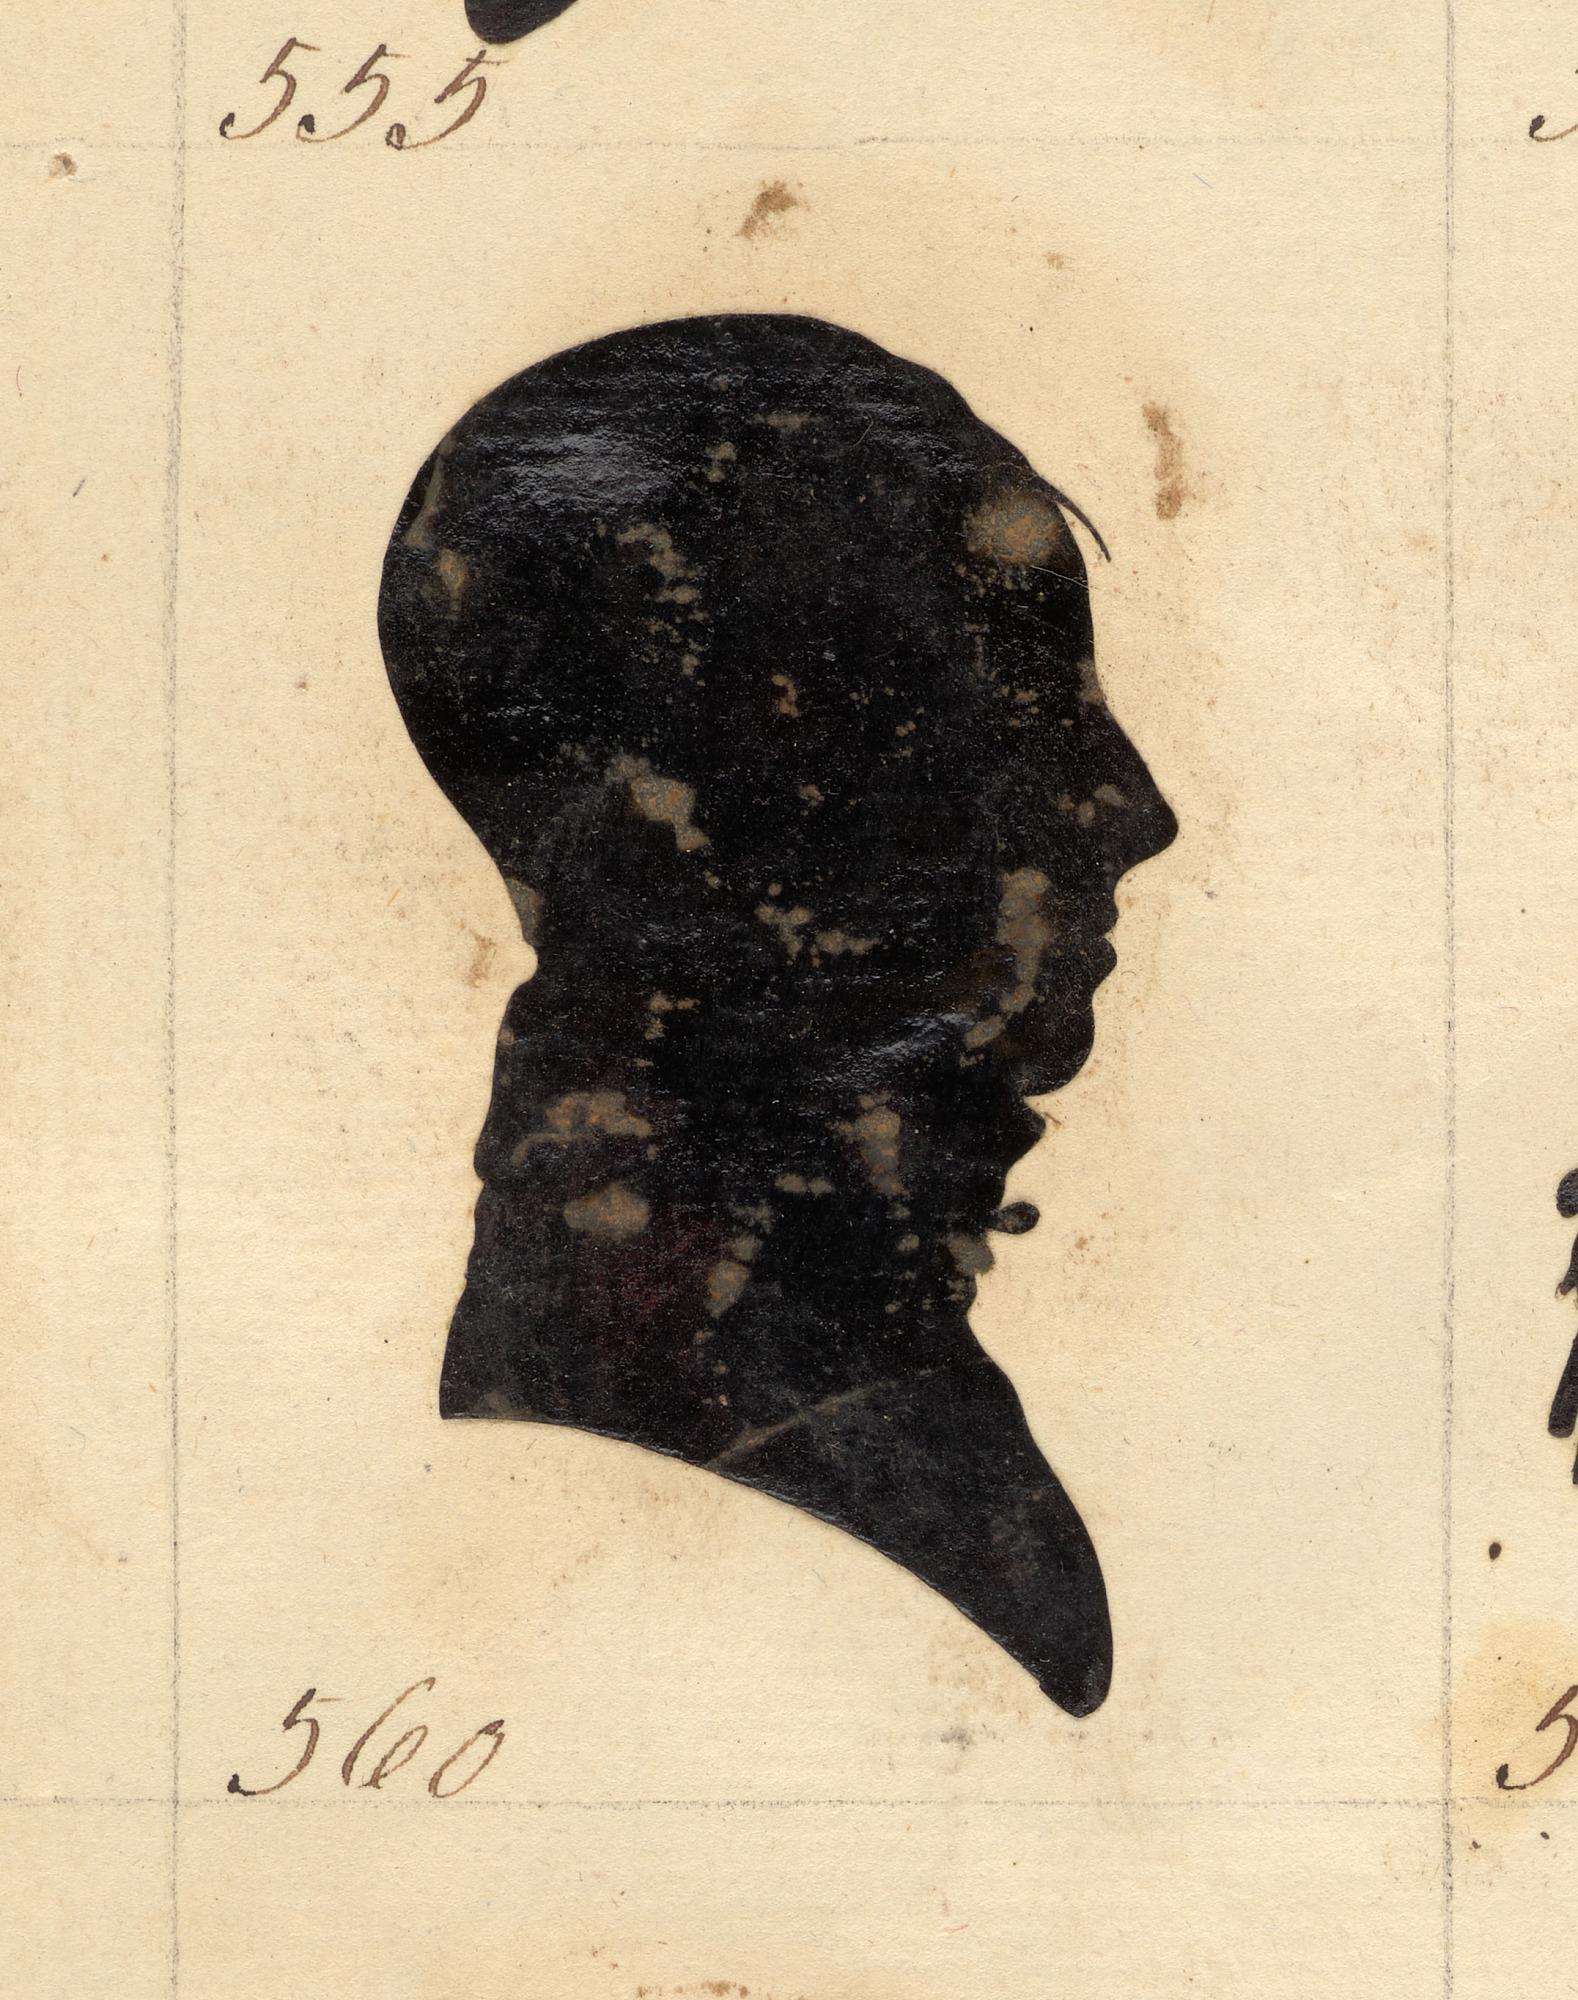 555
560